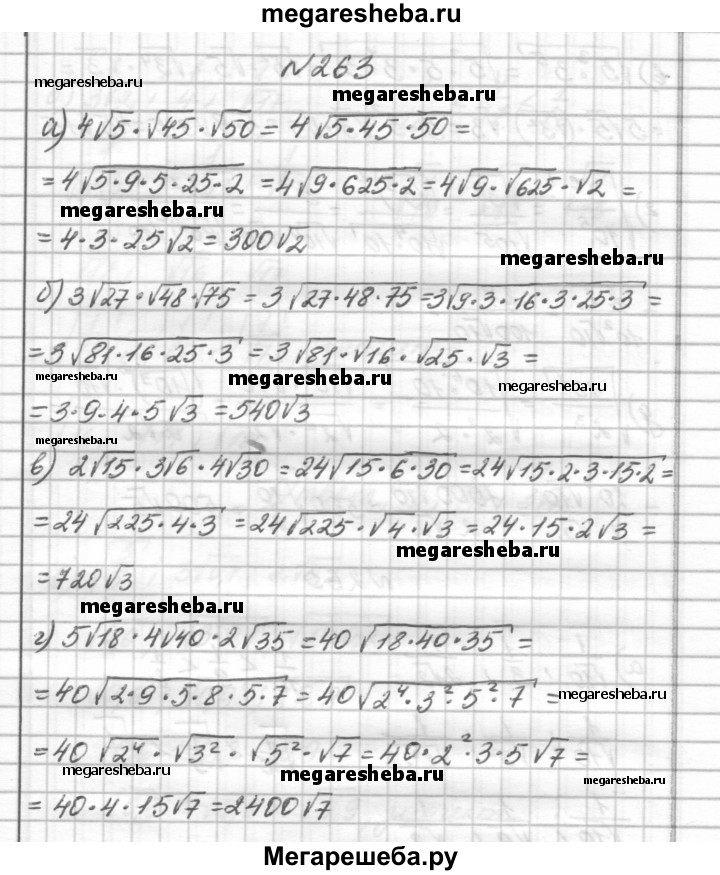 megaresheba.ru
№263
megaresheba.ru
megaresheba.ru
а) 4√5·√45·√50 = 4√(5·45·50) =
= 4√(5·9·5·25·2) = 4√(9·625·2) = 4√9·√625·√2 =
megaresheba.ru
= 4·3·25√2 = 300√2
megaresheba.ru
б) 3√27·√48·√75 = 3√(27·48·75) = 3√(9·3·16·3·25·3) =
= 3√(81·16·25·3) = 3√81·√16·√25·√3 =
megaresheba.ru megaresheba.ru megaresheba.ru
= 3·9·4·5√3 = 540√3
megaresheba.ru
в) 2√15·3√6·4√30 = 24√(15·6·30) = 24√(15·2·3·15·2) =
= 24√(225·4·3) = 24√225·√4·√3 = 24·15·2√3 =
megaresheba.ru
= 720√3
megaresheba.ru
г) 5√18·4√40·2√35 = 40√(18·40·35) =
= 40√(2·9·5·8·5·7) = 40√(2⁴·3²·5²·7) =
megaresheba.ru
= 40√2⁴·√3²·√5²·√7 = 40·2²·3·5√7 =
megaresheba.ru megaresheba.ru megaresheba.ru
= 40·4·15√7 = 2400√7
Мегарешеба.ру